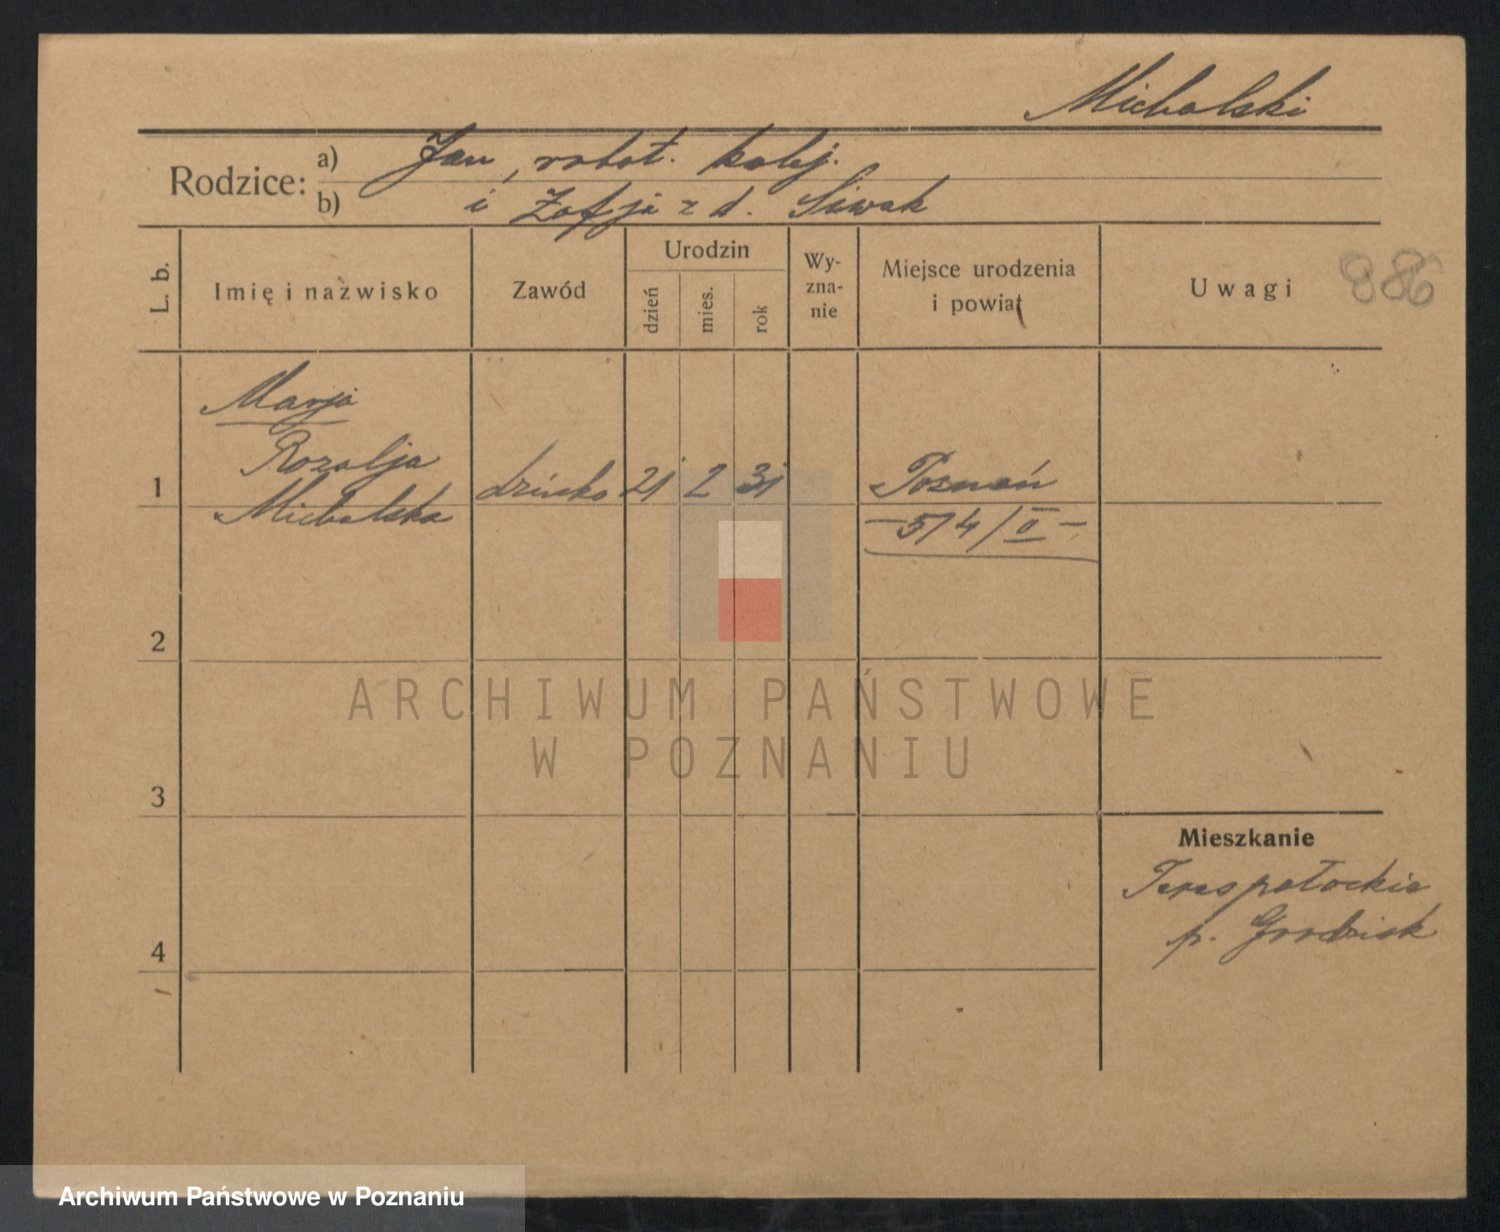 Michalski
Rodzice: a) Jan, robot. kolej.
b) i Zofja z d. Siwak
L. b.
Imię i nazwisko
Zawód
Urodzin
dzień
mies.
rok
Wy-
zna-
nie
Miejsce urodzenia
i powiat
Uwagi
886
Marja
Rozalja
1 Michalska dziecko 21 2 31 Poznań
574/II
2
3
4
Mieszkanie
Terespotockie
p. Grodzisk
ARCHIWUM PAŃSTWOWE
W POZNANIU
Archiwum Państwowe w Poznaniu